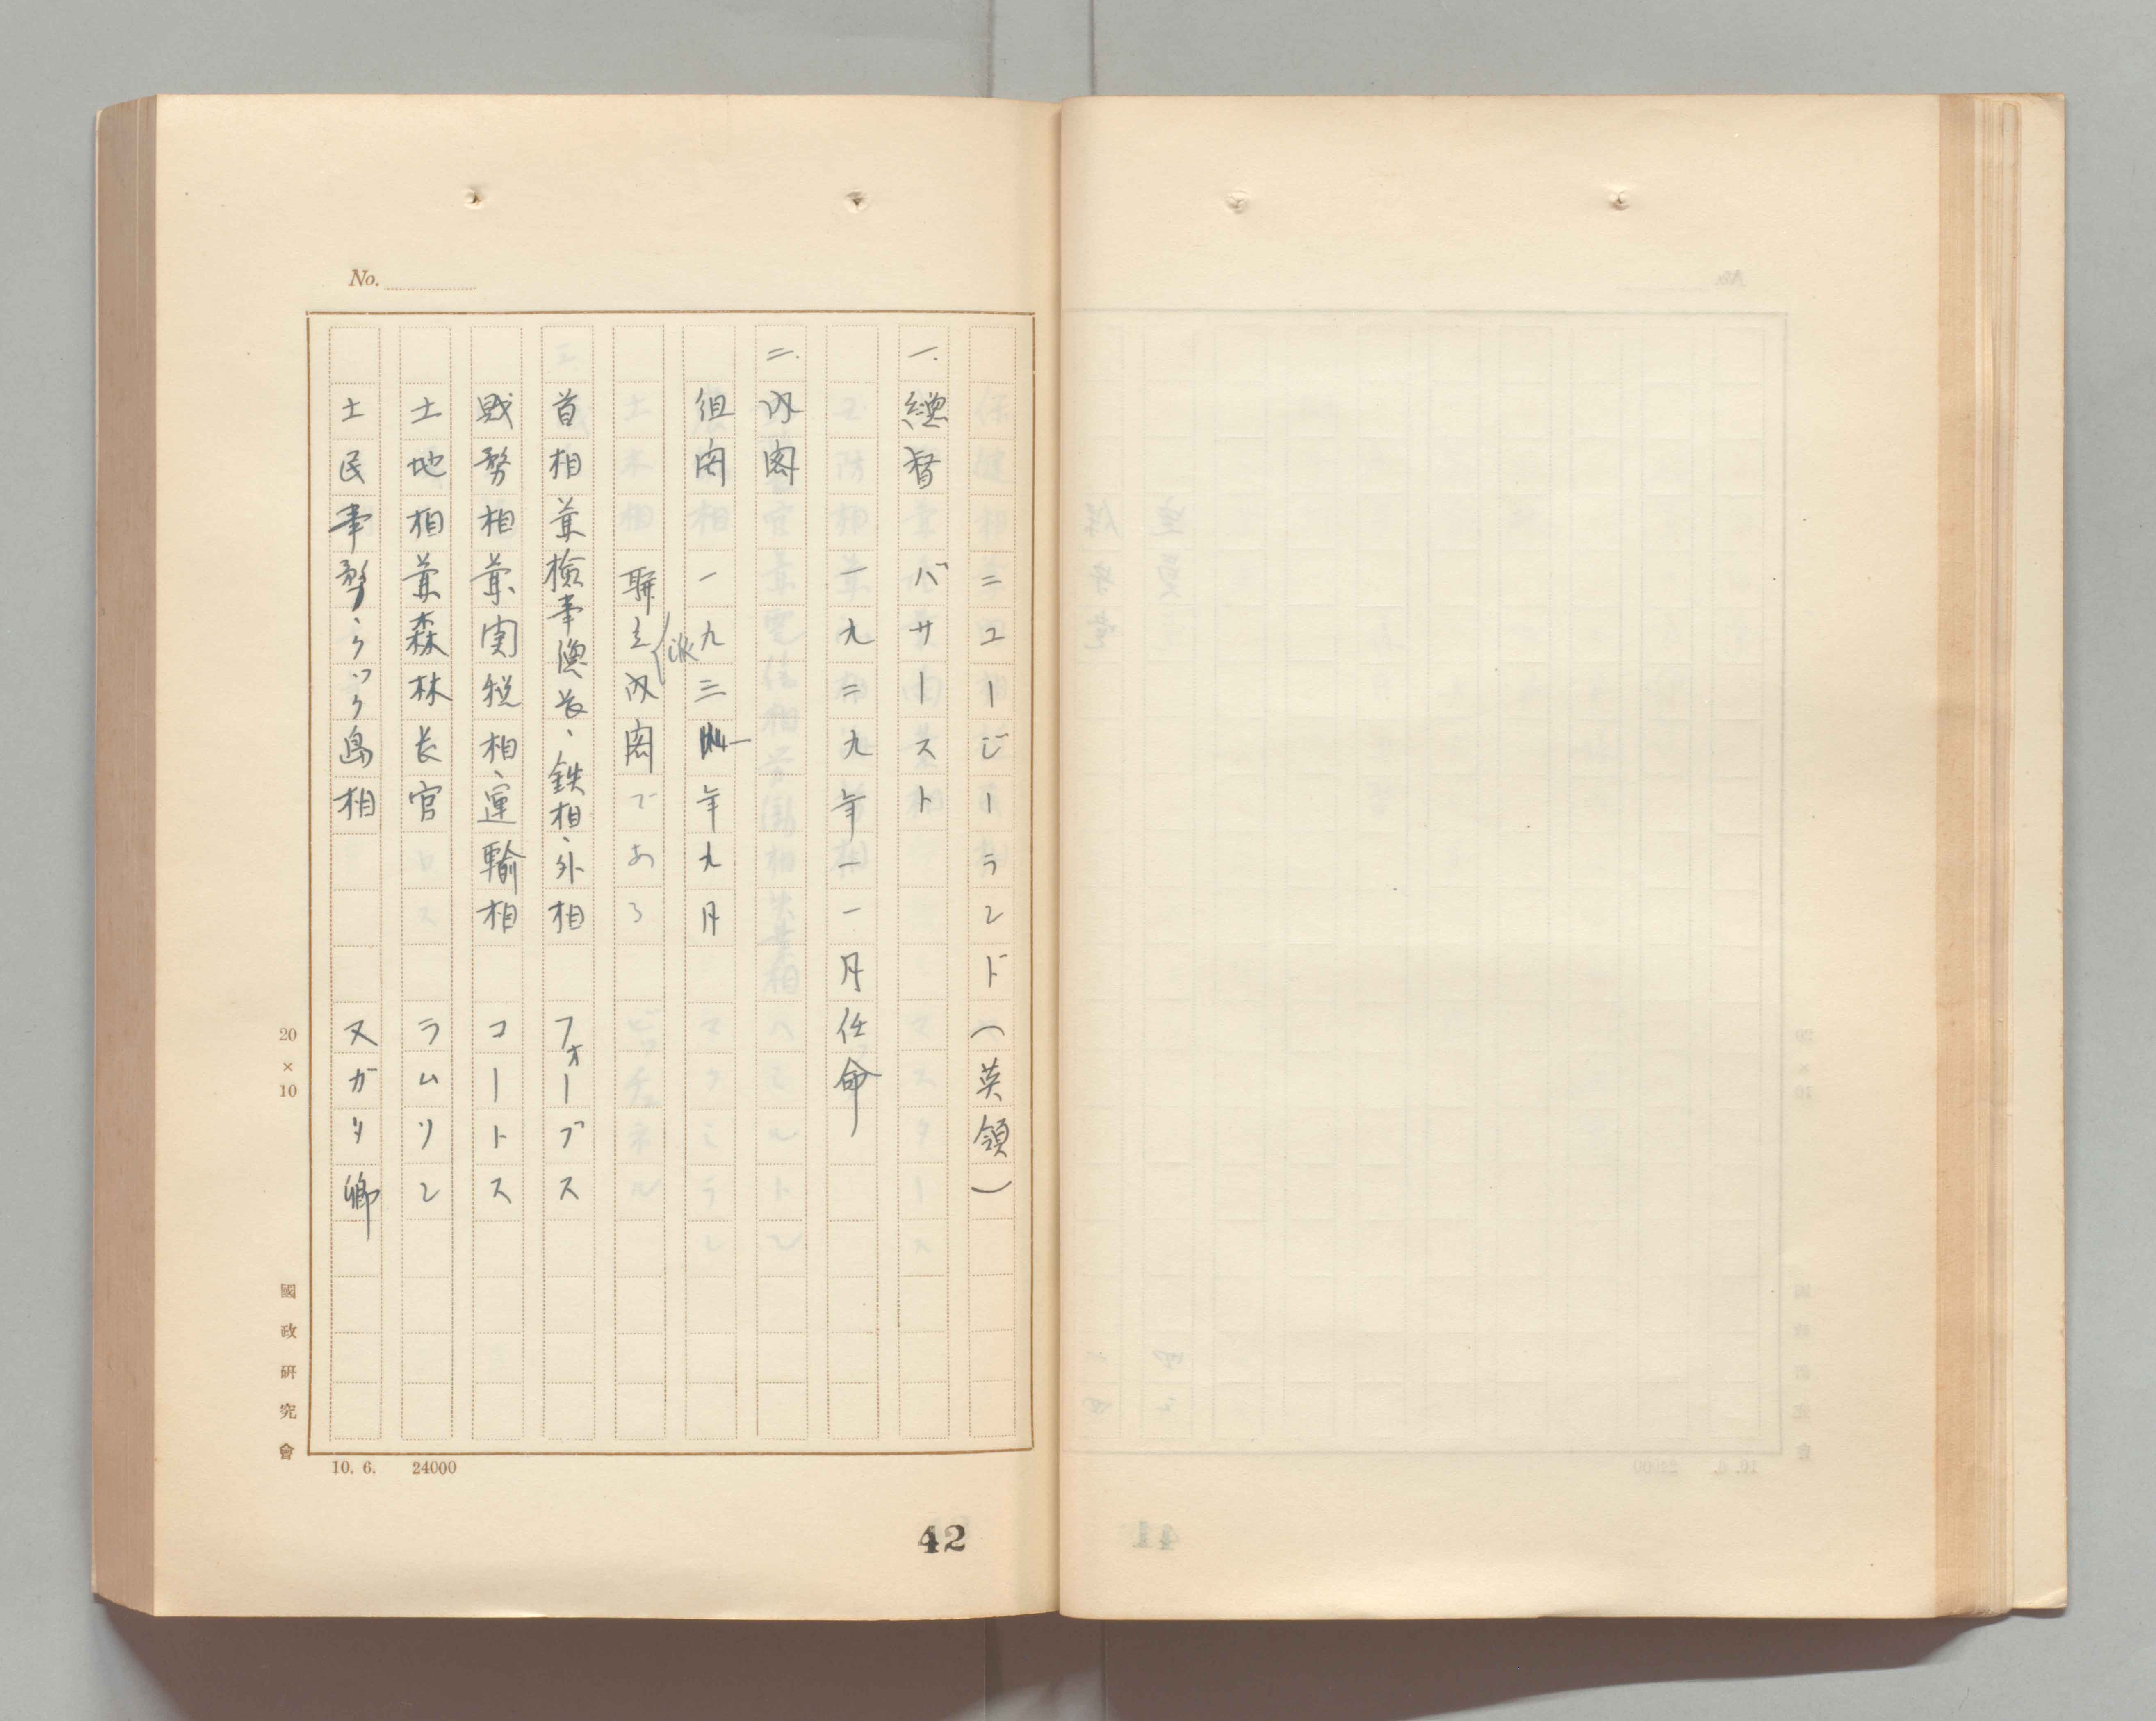 No.
ニユージーランド（英領）
一.總督 バサースト
一九二九年一一月任命
二.内閣
組閣 一九三一年九月
聯立派内閣である
首相兼檢事總長、鉄相、外相 フォーブス
財務相兼関税相、運輸相 コートス
土地相兼森林長官 ラムソン
土民事務、クック島相 ヌガタ卿
20×10
國政研究會
10. 6. 24000
42